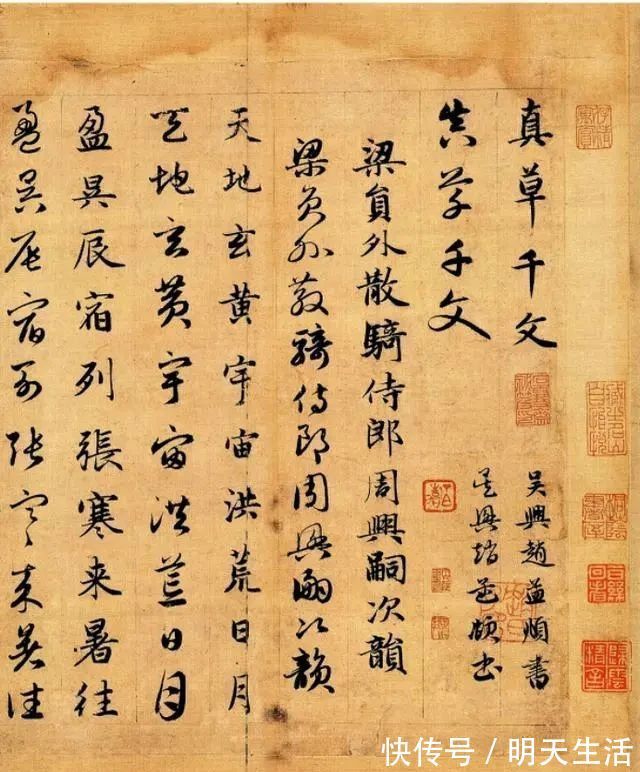 真草千文
真草千文
吴興趙孟頫書
吴興趙孟頫書
梁員外散騎侍郎周興嗣次韻
梁員外散騎侍郎周興嗣次韻
天地玄黄宇宙洪荒日月
天地玄黄宇宙洪荒日月
盈昃辰宿列張寒来暑往
盈昃辰宿列張寒来暑往
快传号 / 明天生活